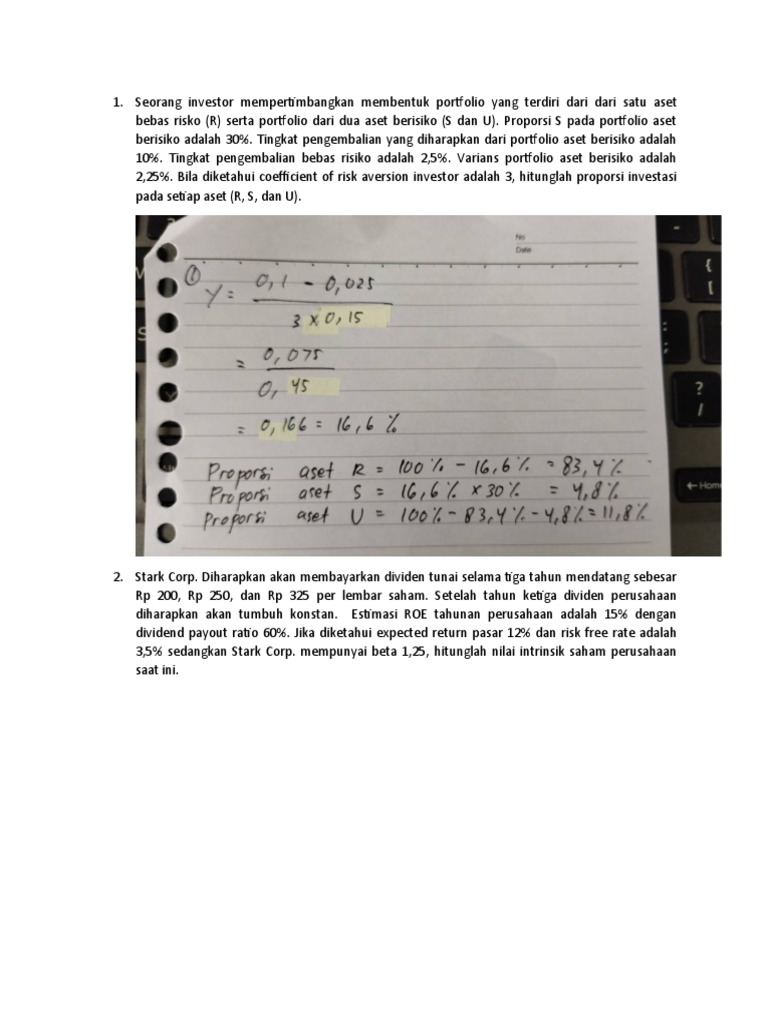 1. Seorang investor mempertimbangkan membentuk portfolio yang terdiri dari dari satu aset
bebas risko (R) serta portfolio dari dua aset berisiko (S dan U). Proporsi S pada portfolio aset
berisiko adalah 30%. Tingkat pengembalian yang diharapkan dari portfolio aset berisiko adalah
10%. Tingkat pengembalian bebas risiko adalah 2,5%. Varians portfolio aset berisiko adalah
2,25%. Bila diketahui coefficient of risk aversion investor adalah 3, hitunglah proporsi investasi
pada setiap aset (R, S, dan U).
No
Date
① Y = 0,1 - 0,025
3 x 0,15
= 0,075
0,45
= 0,166 = 16,6 %
Proporsi aset R = 100% - 16,6% = 83,4%
Proporsi aset S = 16,6% x 30% = 4,8%
Proporsi aset U = 100% - 83,4% - 4,8% = 11,8%
{
[
?
/
← Home
2. Stark Corp. Diharapkan akan membayarkan dividen tunai selama tiga tahun mendatang sebesar
Rp 200, Rp 250, dan Rp 325 per lembar saham. Setelah tahun ketiga dividen perusahaan
diharapkan akan tumbuh konstan. Estimasi ROE tahunan perusahaan adalah 15% dengan
dividend payout ratio 60%. Jika diketahui expected return pasar 12% dan risk free rate adalah
3,5% sedangkan Stark Corp. mempunyai beta 1,25, hitunglah nilai intrinsik saham perusahaan
saat ini.